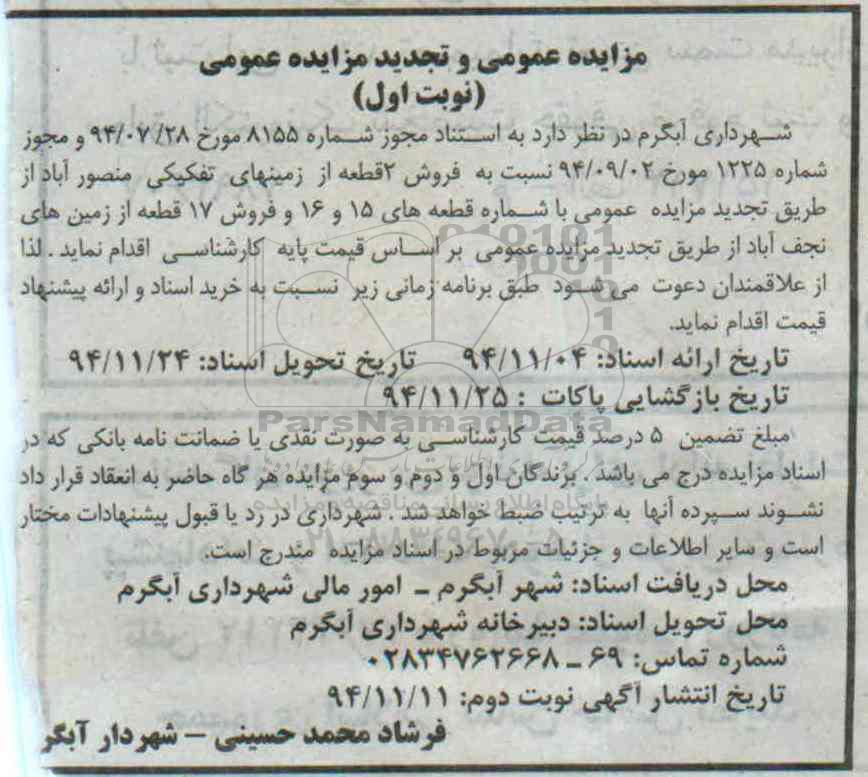 مزایده عمومی و تجدید مزایده عمومی
(نوبت اول)
شهرداری آبگرم در نظر دارد به استناد مجوز شماره ۸۱۵۵ مورخ ۹۴/۰۷/۲۸ و مجوز
شماره ۱۲۲۵ مورخ ۹۴/۰۹/۰۲ نسبت به فروش ۲قطعه از زمینهای تفکیکی منصور آباد از
طریق تجدید مزایده عمومی با شماره قطعه های ۱۵ و ۱۶ و فروش ۱۷ قطعه از زمین های
نجف آباد از طریق تجدید مزایده عمومی بر اساس قیمت پایه کارشناسی اقدام نماید . لذا
از علاقمندان دعوت می شود طبق برنامه زمانی زیر نسبت به خرید اسناد و ارائه پیشنهاد
قیمت اقدام نماید.
تاریخ ارائه اسناد: ۹۴/۱۱/۰۴ تاریخ تحویل اسناد: ۹۴/۱۱/۲۴
تاریخ بازگشایی پاکات : ۹۴/۱۱/۲۵
ParsNamadData
مبلغ تضمین ۵ درصد قیمت کارشناسی به صورت نقدی یا ضمانت نامه بانکی که در
اسناد مزایده درج می باشد . برندگان اول و دوم و سوم مزایده هر گاه حاضر به انعقاد قرار داد
نشوند سپرده آنها به ترتیب ضبط خواهد شد . شهرداری در رد یا قبول پیشنهادات مختار
است و سایر اطلاعات و جزئیات مربوط در اسناد مزایده مندرج است.
محل دریافت اسناد: شهر آبگرم ـ امور مالی شهرداری آبگرم
محل تحویل اسناد: دبیرخانه شهرداری آبگرم
شماره تماس: ۶۹ ـ ۰۲۸۳۴۷۶۲۶۶۸
تاریخ انتشار آگهی نوبت دوم: ۹۴/۱۱/۱۱
فرشاد محمد حسینی – شهردار آبگر